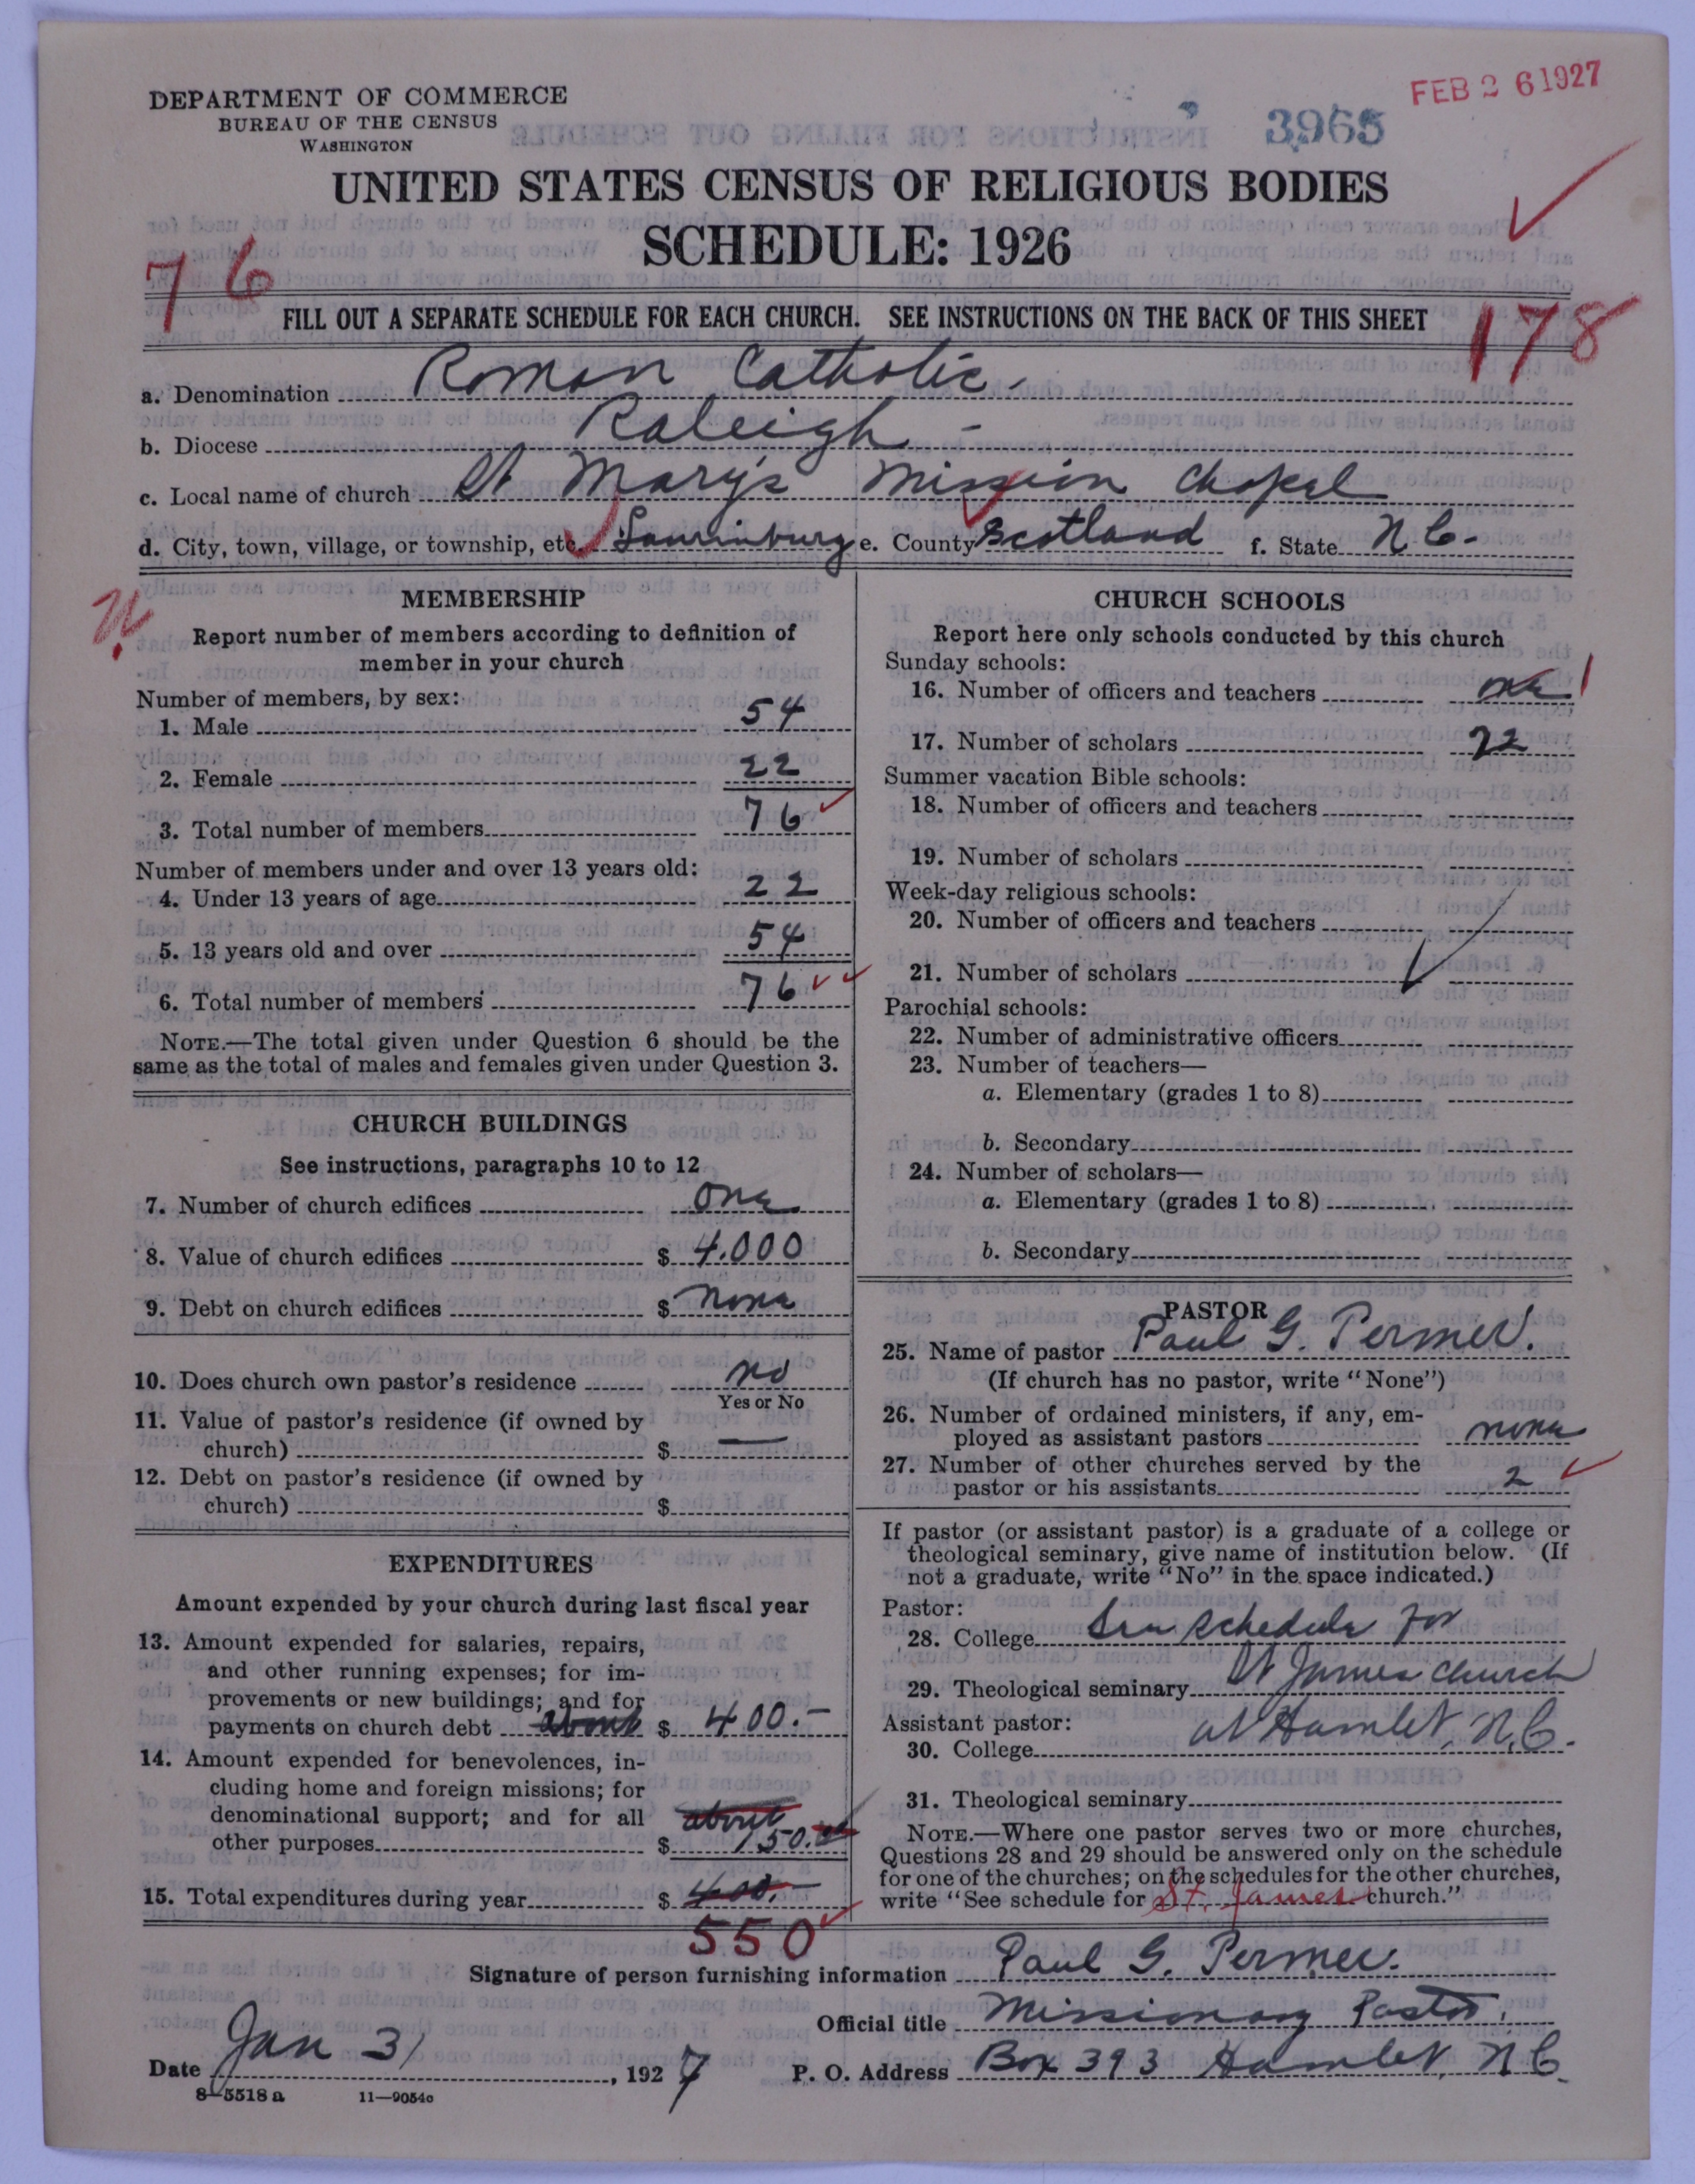 DEPARTMENT OF COMMERCE
BUREAU OF THE CENSUS
WASHINGTON
3965
FEB 26 1927
UNITED STATES CENSUS OF RELIGIOUS BODIES
SCHEDULE: 1926
76
FILL OUT A SEPARATE SCHEDULE FOR EACH CHURCH. SEE INSTRUCTIONS ON THE BACK OF THIS SHEET
178
a. Denomination Roman Catholic.
b. Diocese Raleigh -
c. Local name of church St Mary's Mission Chapel
d. City, town, village, or township, etc. Laurinburg e. County Scotland f. State N C.
MEMBERSHIP
Report number of members according to definition of
member in your church
Number of members, by sex:
1. Male 54
2. Female 22
3. Total number of members 76
Number of members under and over 13 years old:
4. Under 13 years of age 22
5. 13 years old and over 54
6. Total number of members 76
NOTE.—The total given under Question 6 should be the
same as the total of males and females given under Question 3.
CHURCH BUILDINGS
See instructions, paragraphs 10 to 12
7. Number of church edifices one
8. Value of church edifices $ 4.000
9. Debt on church edifices $ none
10. Does church own pastor's residence no
Yes or No
11. Value of pastor's residence (if owned by
church) $ —
12. Debt on pastor's residence (if owned by
church) $
EXPENDITURES
Amount expended by your church during last fiscal year
13. Amount expended for salaries, repairs,
and other running expenses; for im-
provements or new buildings; and for
payments on church debt about $ 400.-
14. Amount expended for benevolences, in-
cluding home and foreign missions; for
denominational support; and for all about
other purposes $ 150.
15. Total expenditures during year $ 400.-
550
CHURCH SCHOOLS
Report here only schools conducted by this church
Sunday schools:
16. Number of officers and teachers one 1
17. Number of scholars 22
Summer vacation Bible schools:
18. Number of officers and teachers
19. Number of scholars
Week-day religious schools:
20. Number of officers and teachers
21. Number of scholars
Parochial schools:
22. Number of administrative officers
23. Number of teachers—
a. Elementary (grades 1 to 8)
b. Secondary
24. Number of scholars—
a. Elementary (grades 1 to 8)
b. Secondary
PASTOR
25. Name of pastor Paul G. Termer.
(If church has no pastor, write "None")
26. Number of ordained ministers, if any, em-
ployed as assistant pastors none
27. Number of other churches served by the
pastor or his assistants 2
If pastor (or assistant pastor) is a graduate of a college or
theological seminary, give name of institution below. (If
not a graduate, write "No" in the space indicated.)
Pastor:
28. College See schedule for
29. Theological seminary St James church
Assistant pastor: at Hamlet, N.C.
30. College
31. Theological seminary
NOTE.—Where one pastor serves two or more churches,
Questions 28 and 29 should be answered only on the schedule
for one of the churches; on the schedules for the other churches,
write "See schedule for St. James church."
Signature of person furnishing information Paul G. Termer.
Official title Missionary Pastor.
Date Jan 31, 1927 P. O. Address Box 393 Hamlet, N C.
8—5518 a 11—9054c